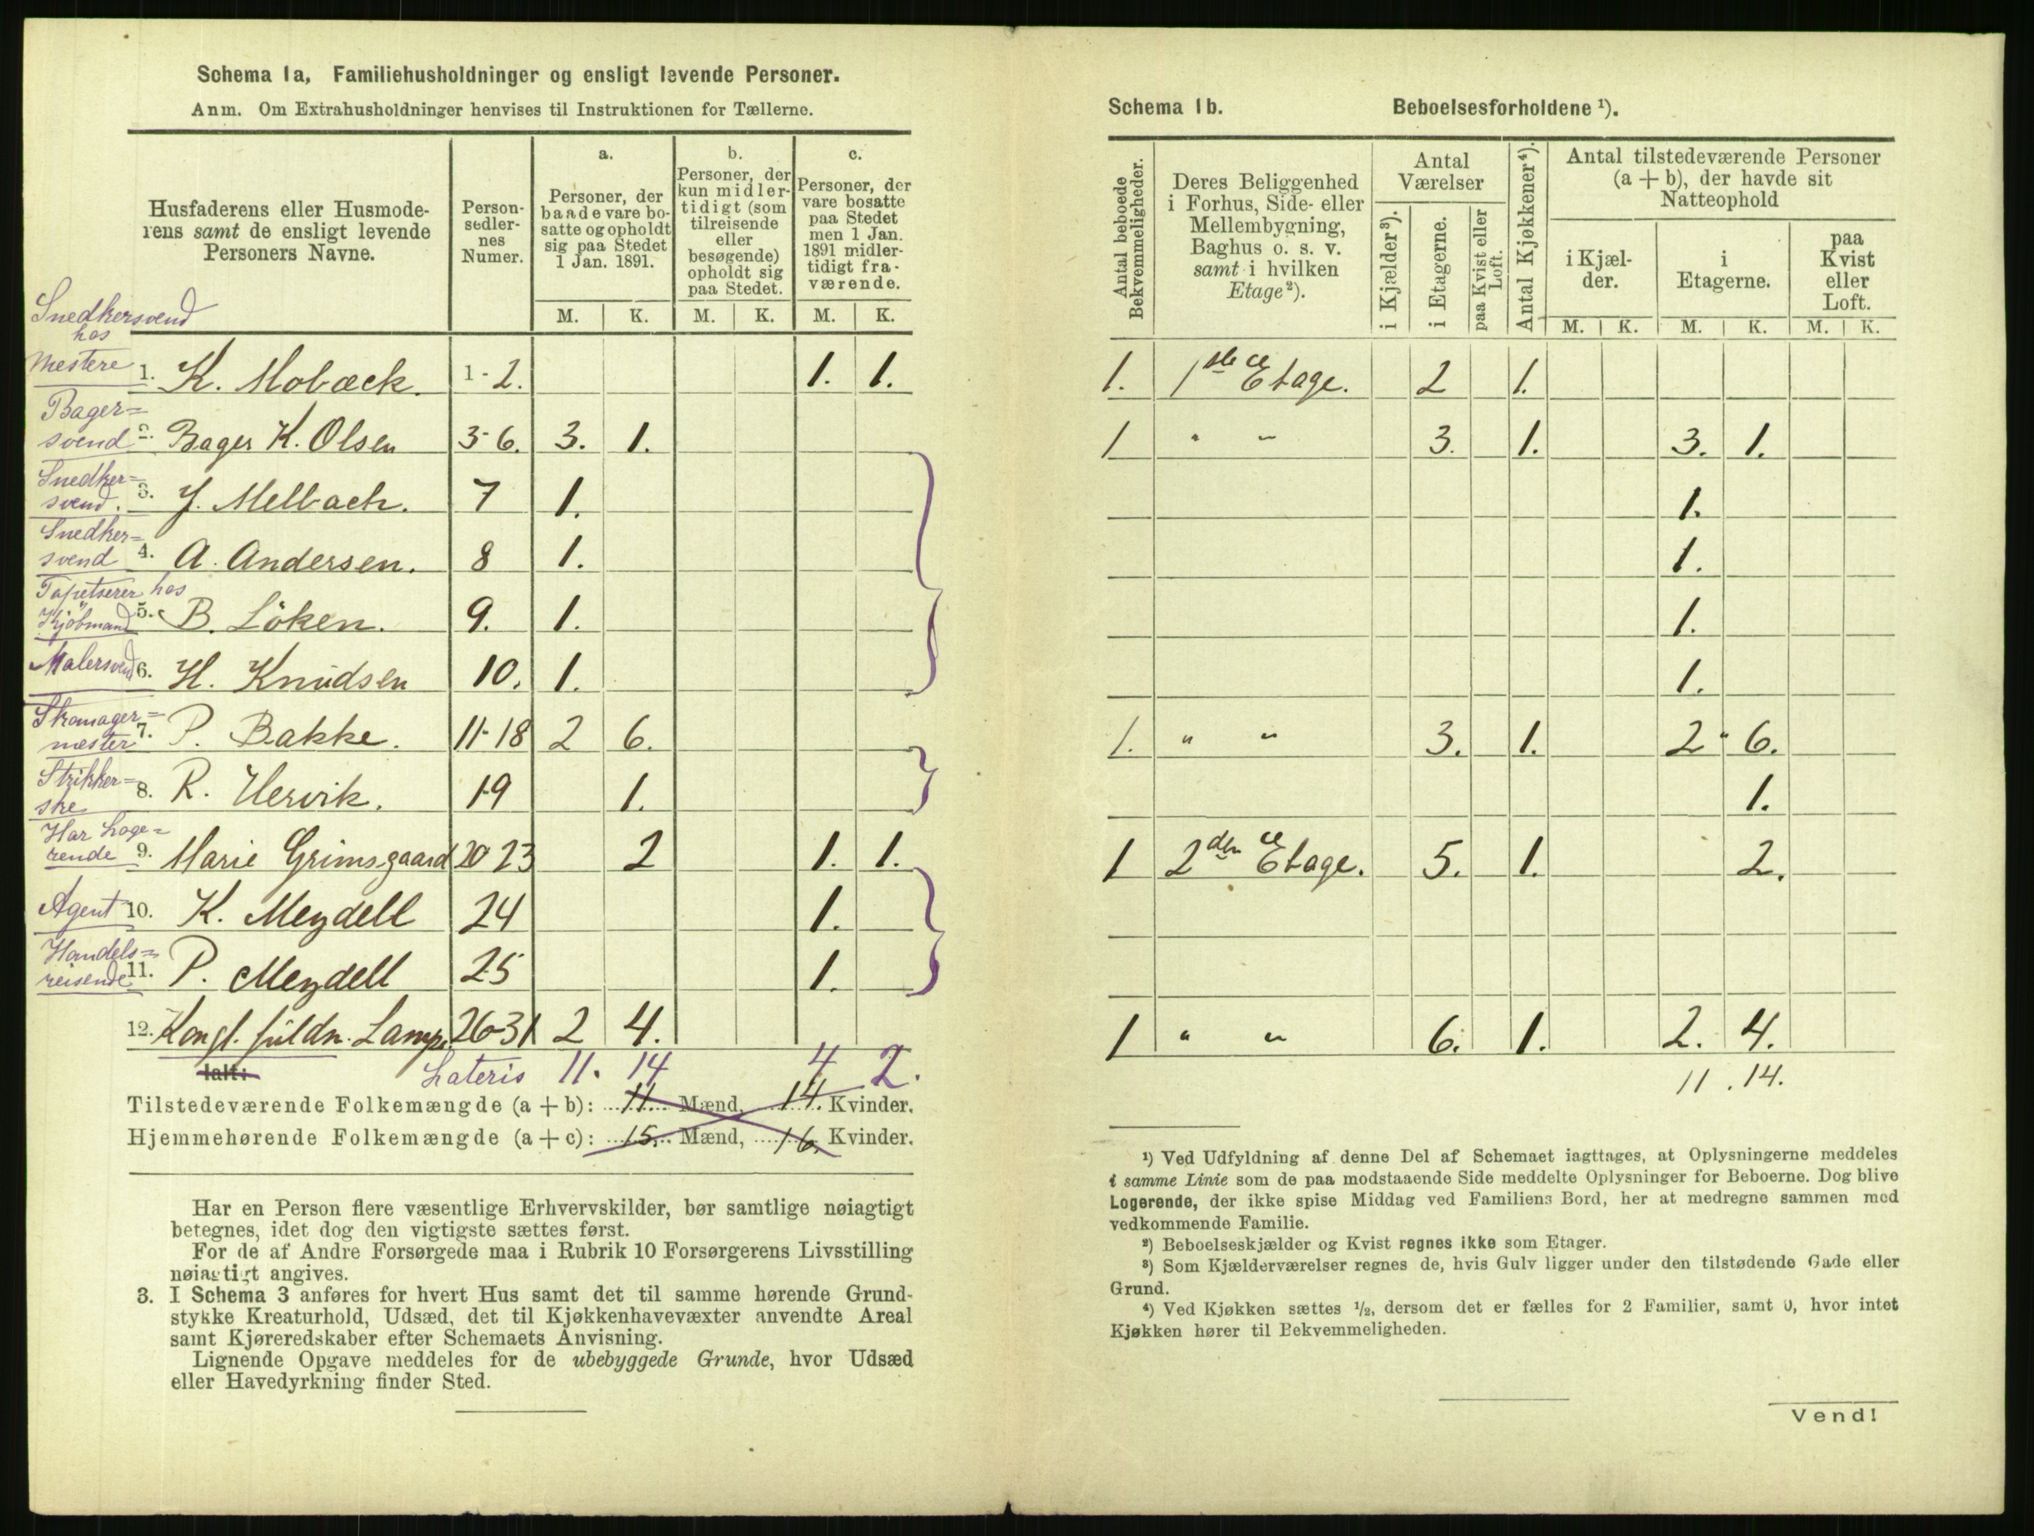 Schema 1a, Familiehusholdninger og ensligt levende Personer.
Anm. Om Extrahusholdninger henvises til Instruktionen for Tællerne.
Husfaderens eller Husmoderens samt de ensligt levende Personers Navne.
Personsedlernes Numer.
a. Personer, der baade vare bosatte og opholdt sig paa Stedet 1 Jan. 1891.
b. Personer, der kun midlertidigt (som tilreisende eller besøgende) opholdt sig paa Stedet.
c. Personer, der vare bosatte paa Stedet men 1 Jan. 1891 midlertidigt fraværende.
M. K. M. K. M. K.
Snedkersvend hos Mestere 1. K. Mobæck. 1-2. 1. 1.
Bagersvend 2. Bager K. Olsen 3-6. 3. 1.
Snedkersvend. 3. J. Melbach. 7 1.
Snedkersvend 4. A. Andersen. 8 1.
Tapetserer hos Kjöbmand 5. B. Löken. 9. 1.
Malersvend 6. H. Knudsen 10. 1.
Skomagermester 7. P. Bakke. 11-18 2 6.
Strikkerske 8. R. Hervik. 19 1.
Har Logerende 9. Marie Grimsgaard 20-23 2 1. 1.
Agent 10. K. Meydell 24 1.
Handelsreisende 11. P. Meydell 25 1.
12. Kongl. fuldm. Lamp. 26-31 2 4.
Ialt: Lateris 11. 14 4 2.
Tilstedeværende Folkemængde (a + b): 11. Mænd, 14. Kvinder.
Hjemmehørende Folkemængde (a + c): 15. Mænd, 16. Kvinder.
Har en Person flere væsentlige Erhvervskilder, bør samtlige nøiagtigt
betegnes, idet dog den vigtigste sættes først.
For de af Andre Forsørgede maa i Rubrik 10 Forsørgerens Livsstilling
nøiagtigt angives.
3. I Schema 3 anføres for hvert Hus samt det til samme hørende Grund-
stykke Kreaturhold, Udsæd, det til Kjøkkenhavevæxter anvendte Areal
samt Kjøreredskaber efter Schemaets Anvisning.
Lignende Opgave meddeles for de ubebyggede Grunde, hvor Udsæd
eller Havedyrkning finder Sted.
Schema 1b. Beboelsesforholdene ¹).
Antal beboede Bekvemmeligheder.
Deres Beliggenhed i Forhus, Side- eller Mellembygning, Baghus o. s. v. samt i hvilken Etage ²).
Antal Værelser
i Kjælder ³).
i Etagerne.
paa Kvist eller Loft.
Antal Kjøkkener ⁴).
Antal tilstedeværende Personer (a + b), der havde sit Natteophold
i Kjælder.
i Etagerne.
paa Kvist eller Loft.
M. K. M. K. M. K.
1. 1ste Etage. 2 1.
1 " " 3. 1. 3. 1.
1.
1.
1.
1.
1. " " 3. 1. 2 " 6.
1.
1 2den Etage. 5. 1. 2.
1 " " 6. 1. 2. 4.
11. 14.
¹) Ved Udfyldning af denne Del af Schemaet iagttages, at Oplysningerne meddeles
i samme Linie som de paa modstaaende Side meddelte Oplysninger for Beboerne. Dog blive
Logerende, der ikke spise Middag ved Familiens Bord, her at medregne sammen med
vedkommende Familie.
²) Beboelseskjælder og Kvist regnes ikke som Etager.
³) Som Kjælderværelser regnes de, hvis Gulv ligger under den tilstødende Gade eller
Grund.
⁴) Ved Kjøkken sættes ½, dersom det er fælles for 2 Familier, samt 0, hvor intet
Kjøkken hører til Bekvemmeligheden.
Vend!